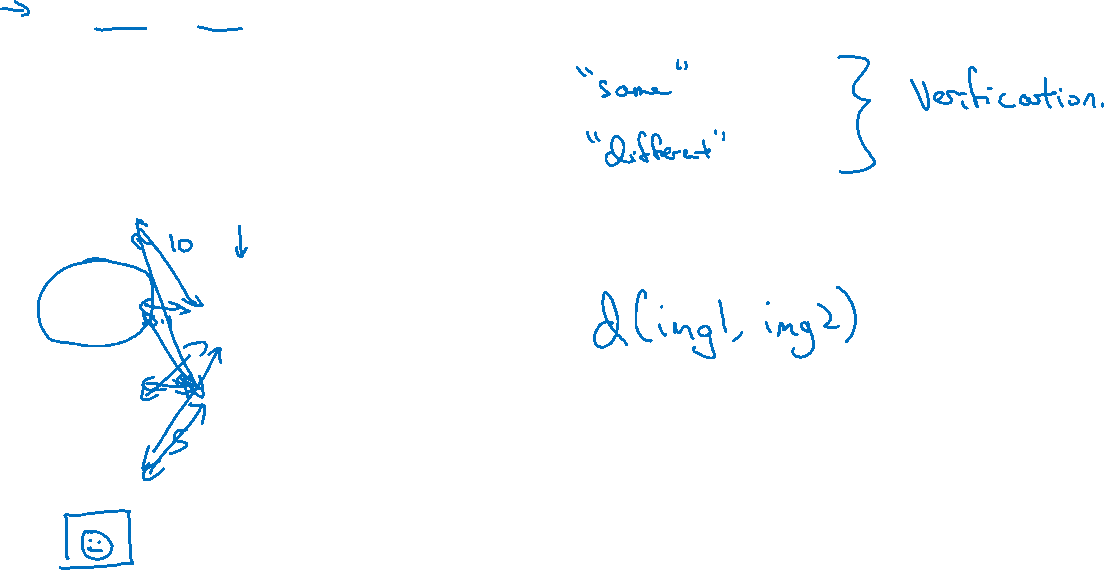 "same"
"different"
Verification.
10
d(img1, img2)